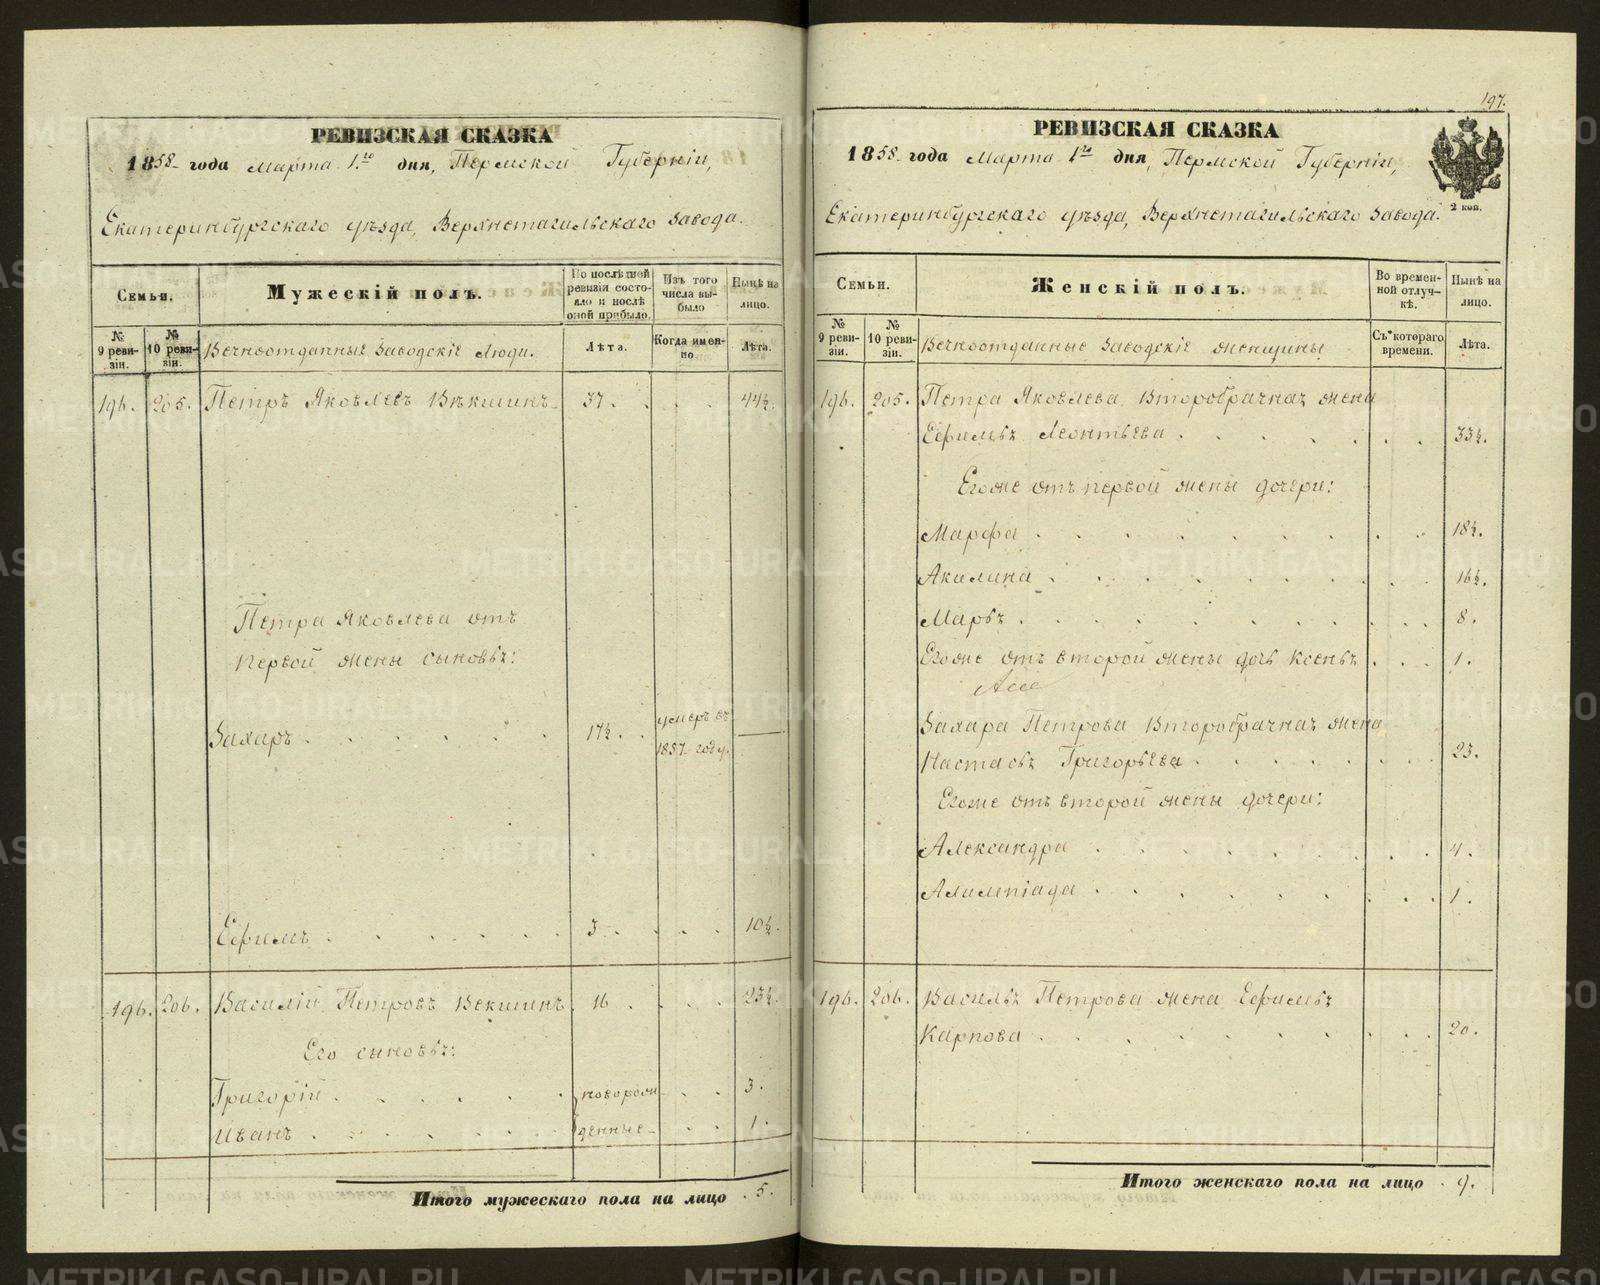 РЕВИЗСКАЯ СКАЗКА
1858 года Марта 1го дня, Пермской Губерніи,
Екатеринбургскаго уѣзда, Верхнетагильскаго завода.
Семьи.
Мужескій полъ.
По послѣдней ревизіи состояло и послѣ оной прибыло.
Изъ того числа выбыло
Нынѣ на лицо.
№ 9 ревизіи.
№ 10 ревизіи.
Вечноотданные Заводскіе люди.
Лѣта.
Когда именно.
Лѣта.
196. 205. Петръ Яковлевъ Векшинъ 37. 44½.
Петра Яковлева отъ
первой жены сыновья:
Захаръ 17½. умеръ въ 1857 году. —
Ефимъ 3. 10½.
196. 206. Василій Петровъ Векшинъ 16. 23½.
Его сыновья:
Григорій новорож 3.
Иванъ денные 1.
Итого мужескаго пола на лицо 5.
197.
РЕВИЗСКАЯ СКАЗКА
1858 года Марта 1го дня, Пермской Губерніи,
2 коп.
Екатеринбургскаго уѣзда, Верхнетагильскаго завода.
Семьи.
Женскій полъ.
Во временной отлучкѣ.
Нынѣ на лицо.
№ 9 ревизіи.
№ 10 ревизіи.
Вечноотданные Заводскіе женщины
Съ котораго времени.
Лѣта.
196. 205. Петра Яковлева второбрачная жена
Ефимья Леонтьева 33½.
Егоже отъ первой жены дочери:
Марфа 18½.
Акилина 16½.
Марья 8.
Егоже отъ второй жены дочь Ксенья 1.
Захара Петрова второбрачная жена
Настасья Григорьева 23.
Егоже отъ второй жены дочери:
Александра 4.
Алимпіада 1.
196. 206. Василья Петрова жена Ефимья
Карпова 20.
Итого женскаго пола на лицо 9.
METRIKI.GASO-URAL.RU